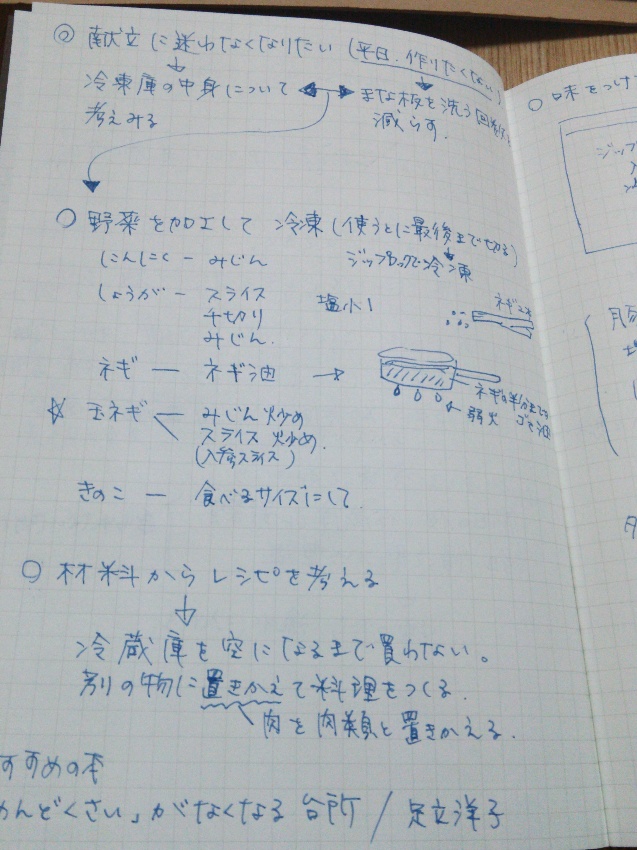 ◎ 献立に迷わなくなりたい (平日、作りたくない)
冷凍庫の中身について
考えみる
まな板を洗う回数を
減らす.
○ 野菜を加工して 冷凍 (使うときに最後まで切る)
ジップロックで冷凍
にんにく ー みじん
しょうが ー スライス
千切り
みじん.
塩小1
ネギ2本
ネギ ー ネギ油 →
ネギの半分まで
ゴマ油
弱火
☆ 玉ネギ ー みじん 炒め
スライス 炒め.
(人参スライス)
きのこ ー 食べるサイズにして
○ 材料から レシピを考える
冷蔵庫を空になるまで買わない。
別の物に置きかえて料理をつくる.
肉を肉類と置きかえる.
すすめの本
めんどくさい」がなくなる 台所 / 足立洋子
○ 味をつけ
ジップ